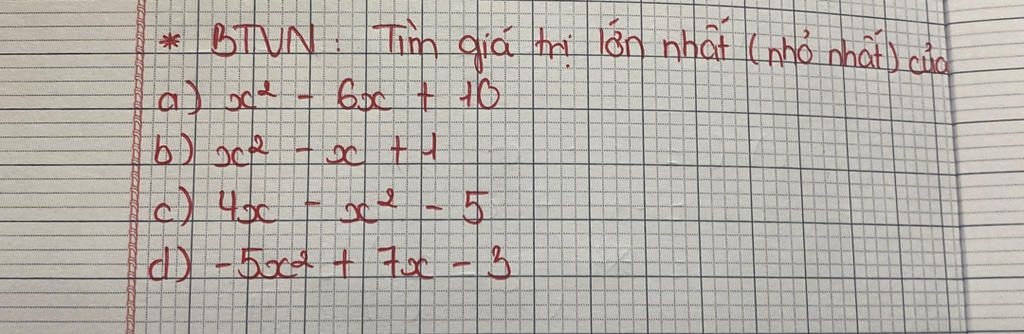 * BTVN: Tìm giá trị lớn nhất (nhỏ nhất) của
a) x² - 6x + 10
b) x² - x + 1
c) 4x - x² - 5
d) -5x² + 7x - 3